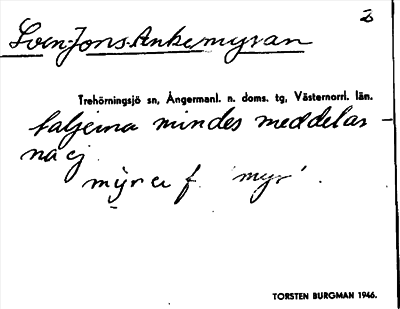 Sven-Jons-Ankemyran
Trehörningsjö sn, Ångermanl. n. doms. tg, Västernorrl. län.
mindes meddelar-
na ej
myra f. 'myr'.
TORSTEN BURGMAN 1946.